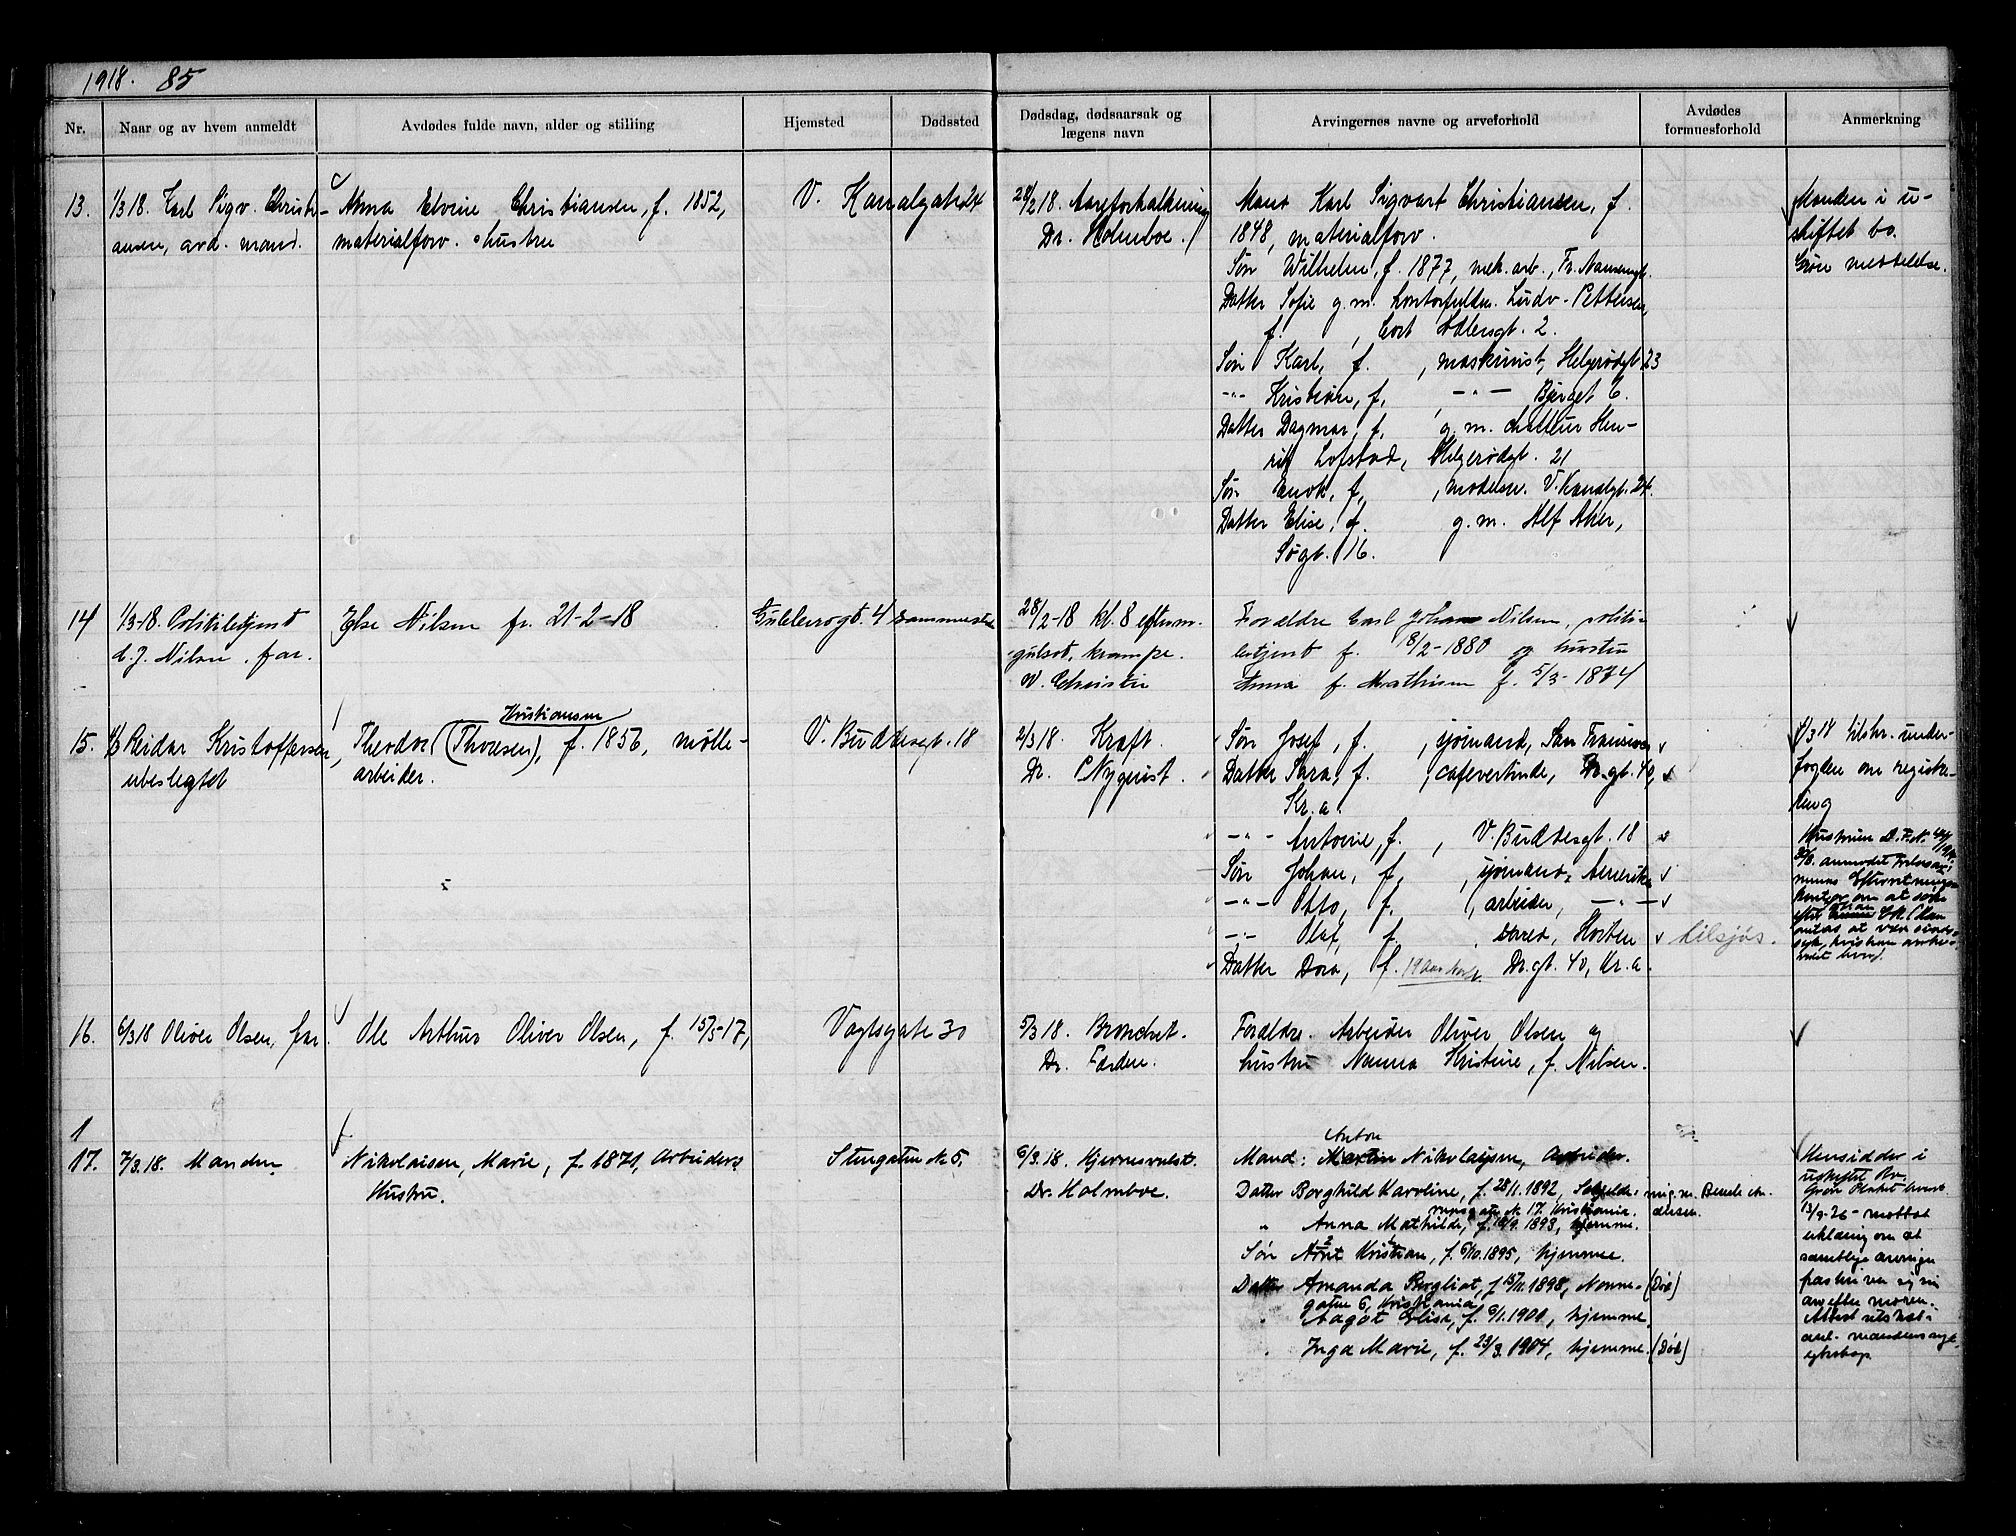 1918. 85
Nr.
Naar og av hvem anmeldt
Avdødes fulde navn, alder og stilling
Hjemsted
Dødssted
Dødsdag, dødsaarsak og
lægens navn
Arvingernes navne og arveforhold
Avdødes
formuesforhold
Anmerkning
13.
1/3 18. Karl Sigv. Christi-
ansen, avd. mand.
Alma Elvine Christiansen, f. 1852,
materialforv. hustru
V. Kanalgate 24
28/2 18. Aareforkalkning
Dr. Holmboe.
Mand Karl Sigvart Christiansen, f.
1848, materialforv.
Søn Wilhelm, f. 1877, mek. arb., Fr. Nansengt.
Datter Sofie g. m. kontorfuldm. Ludv. Pettersen,
f. , Cort Adlersgt. 2.
Søn Karl, f. , maskinist, Helgerødgt. 23
-"- Kristian, f. , -"- Bjerget 6.
Datter Dagmar, f. , g. m. chauffeur Hen-
rik Lofstad, Helgerødgt. 21
Søn Enok, f. , modelsn. V. Kanalgt. 24.
Datter Elise, f. g. m. Alf Aker,
Søgt. 16.
Manden i u-
skiftet bo.
Grøn meddelelse.
14
1/3-18. Politibetjent
C. J. Nilsen, far.
Else Nilsen fr. 21-2-18
Guldbergt. 4
sammested
28/2-18 kl. 8 efterm.
gulsot, krampe.
W. Christie
Forældre Carl Johan Nilsen, politi-
betjent f. 18/2-1880 og hustru
Anna f. Mathisen f. 5/3-1874
15.
Reidar Kristoffersen,
ubeslegtet
Kristiansen
Theodor (Thoresen), f. 1856, mølle-
arbeider.
V. Buddesgt. 18
2/3 18. Kræft.
Dr. Nyquist.
Søn Josef, f. , sjømand, San Fransisco
Datter Sara, f. , cafevertinde, Dr. gt. 40,
Kr.a.
-"- Antonie, f. , V. Buddesgt. 18
Søn Johan, f. , sjømand, Amerika
-"- Otto, f. , arbeider, -"-
-"- Olaf, f. , Horten
tilsjøs.
Datter Dora, f. 19 aar Dr. gt. 40, Kr.a.
4/3 18 tilskr. under-
fogden om registre-
ring
16.
6/3 18 Oliver Olsen, far.
Ole Arthur Oliver Olsen, f. 15/5-17,
Vogtsgate 30
5/3 18. Bronchit.
Dr. Farden.
Forældre. Arbeider Oliver Olsen og
hustru Nanna Kristine, f. Nilsen.
1
17.
7/3. 18. Manden
Nikolaisen, Marie, f. 1871, Arbeiders
Hustru.
Stengaten No 5.
6/3. 18. Hjernesvulst.
Dr. Holmboe.
Anton
Mand: Martin Nikolaisen, Arbeider.
Datter Borghild Karoline, f. 28/11. 1892,
gate No 17. Kristiania.
" Anna Mathilde, f. 1893, hjemme.
Søn Arnt Kristian, f. 6/10. 1895, hjemme.
Datter Amanda Bergliot, f. 15/11. 1898, Nonne- (Død)
gaten 6, Kristiania
" Aagot Elise, f. 6/1. 1901, hjemme.
" Inga Marie, f. 23/3. 1904, hjemme. (Død)
Hensidder i
uskiftet Bo.
13/9-26 - mottat
erklæring om at
samtlige arvinger
efter moren.